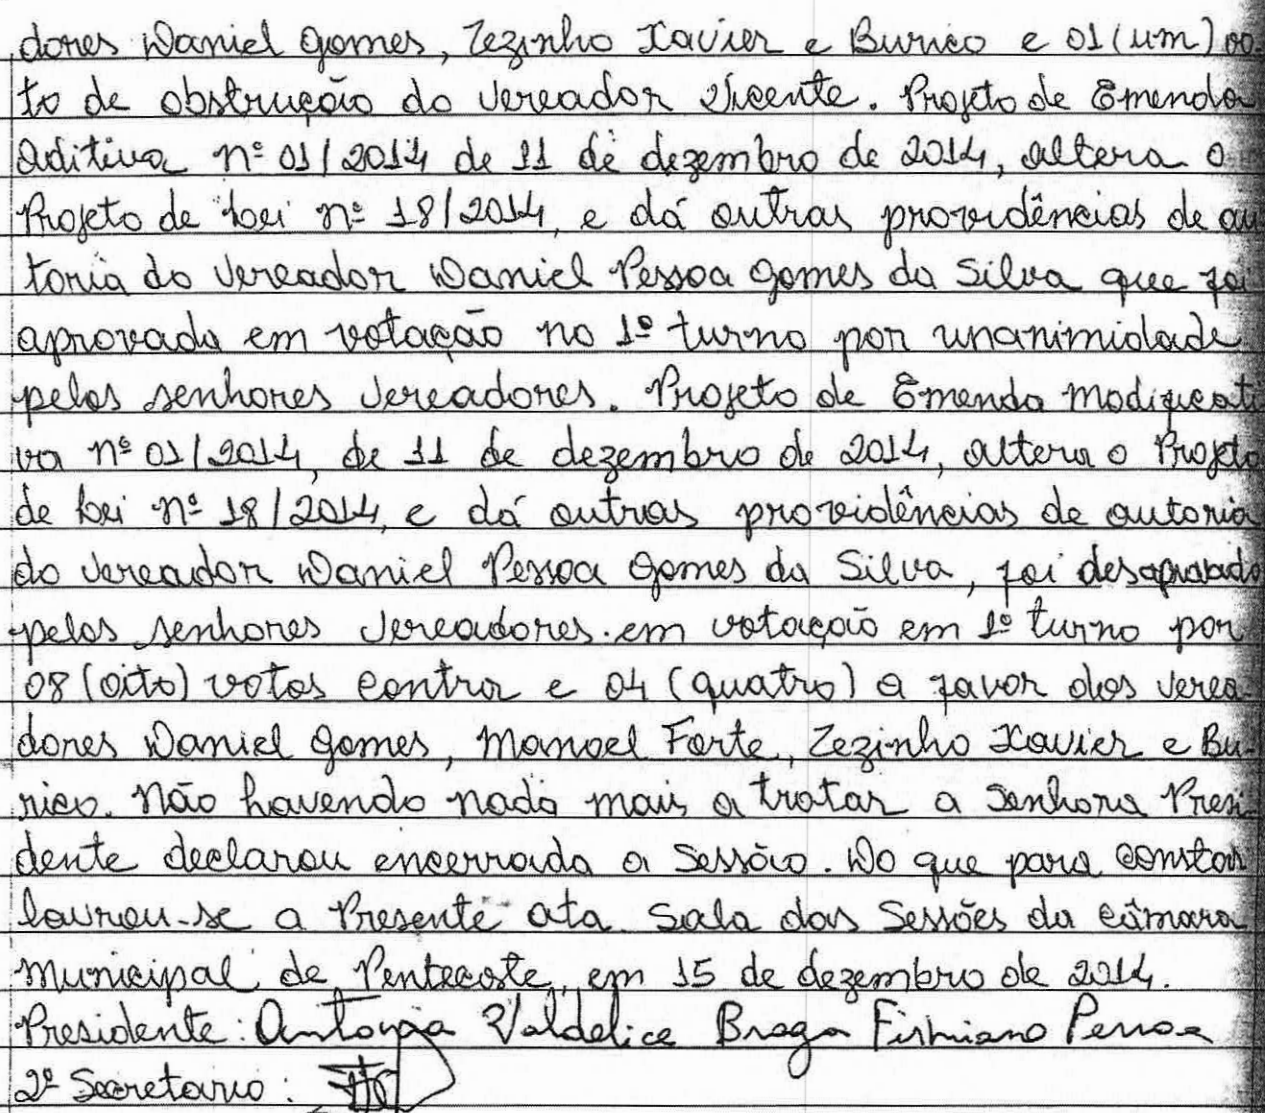 dores Daniel Gomes, Zezinho Xavier e Burico e 01 (um) vo-
to de obstrução do Vereador Vicente. Projeto de Emenda
Aditiva nº 01/2014 de 11 de dezembro de 2014, altera o
Projeto de Lei nº 18/2014, e dá outras providências de au
toria do Vereador Daniel Pessoa Gomes da Silva que foi
aprovada em votação no 1º turno por unanimidade
pelos senhores Vereadores. Projeto de Emenda Modificati
va nº 01/2014, de 11 de dezembro de 2014, altera o Projeto
de Lei nº 18/2014, e dá outras providências de autoria
do Vereador Daniel Pessoa Gomes da Silva, foi desaprovado
pelos senhores Vereadores. em votação em 1º turno por
08 (oito) votos contra e 04 (quatro) a favor dos Verea-
dores Daniel Gomes, Manoel Forte, Zezinho Xavier e Bu-
rico. Não havendo nada mais a tratar a Senhora Presi-
dente declarou encerrada a Sessão. Do que para constar
lavrou-se a Presente ata. Sala das Sessões da Câmara
Municipal de Pentecoste, em 15 de dezembro de 2014.
Presidente: Antonia Valdelice Braga Firmiano Pessoa
2º Secretario: